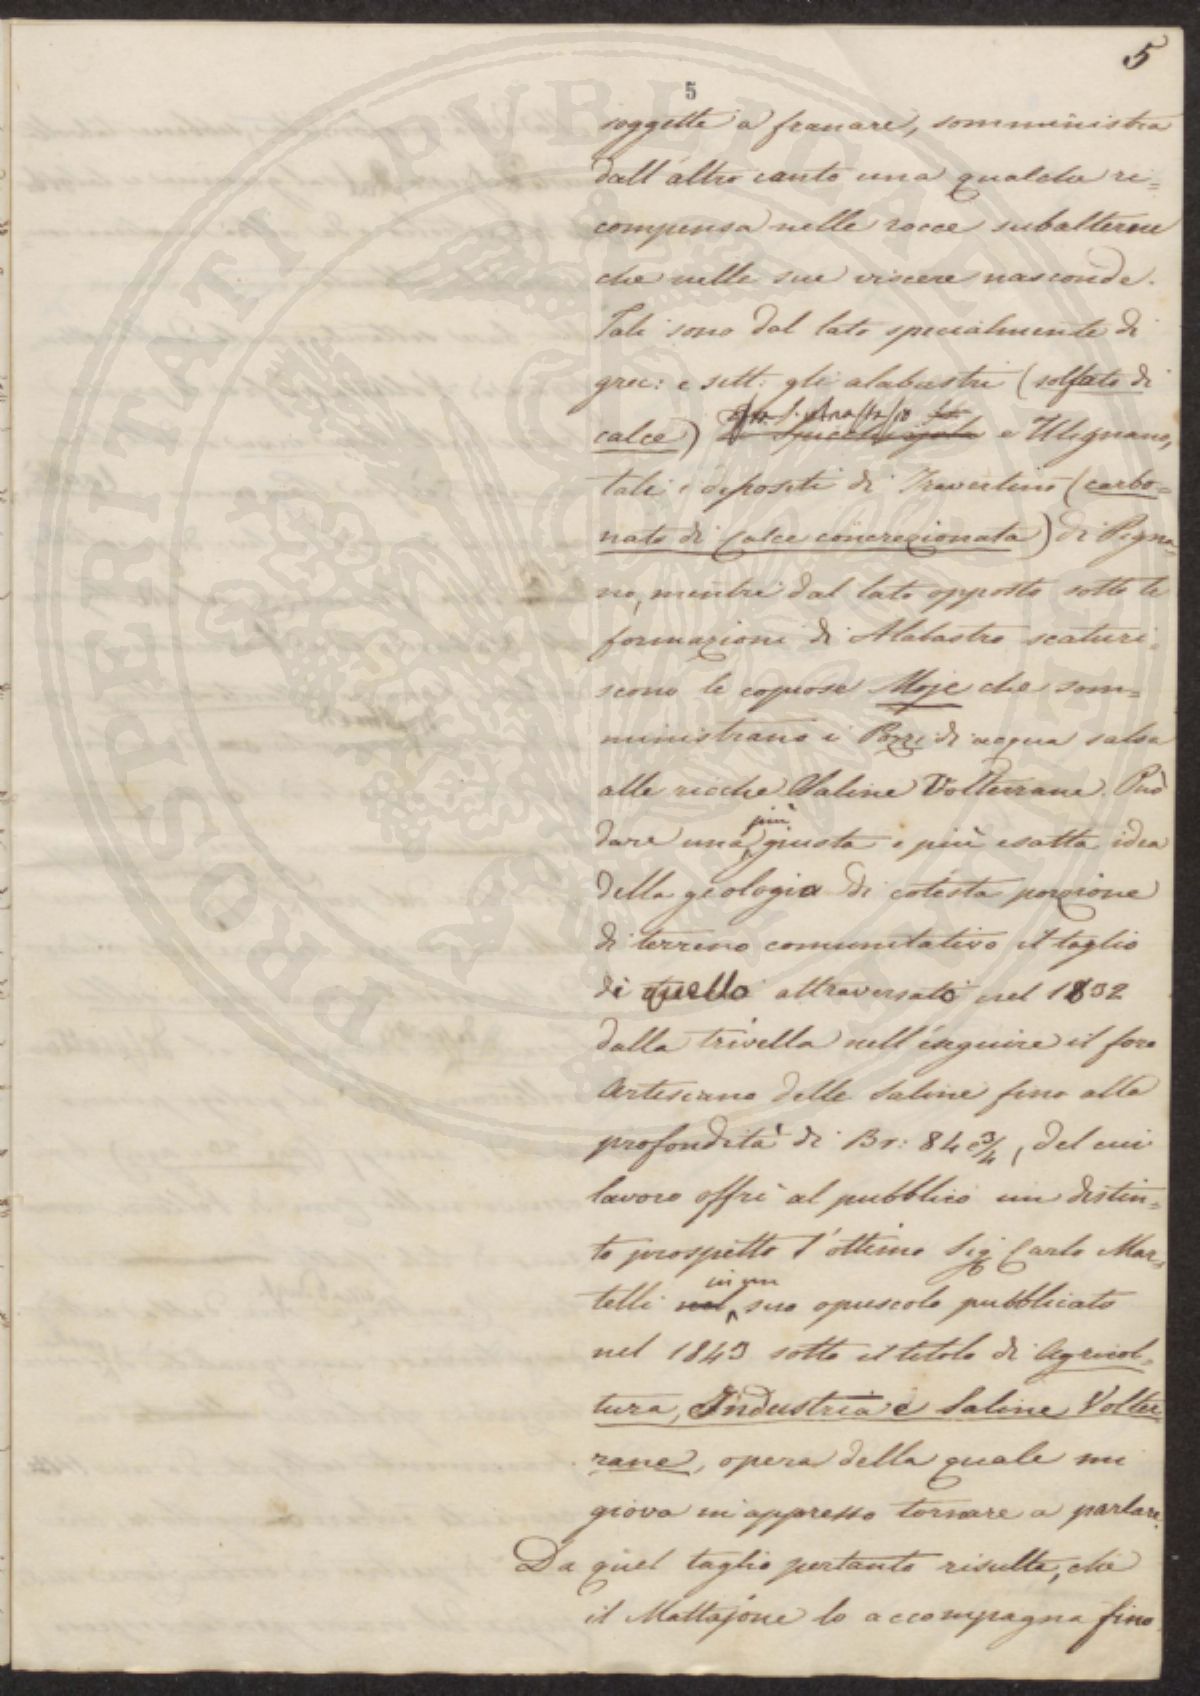 5
5
soggette a franare, somministra
dall'altro canto una qualche ri=
compensa nelle rocce subalterne
che nelle sue viscere nasconde.
Tali sono dal lato specialmente di
grec: e sett: gli alabastri (solfato di
calce) di Spicchiajola e Ulignano,
tali i depositi di Travertino (carbo=
nato di calce concrezionata) di Pigna=
no, mentre dal lato opposto sotto le
formazioni di Alabastro scaturi=
scono le copiose Moje che som=
ministrano i Pozzi di acqua salsa
alle ricche Saline Volterrane. Può
dare una più giusta e più esatta idea
della geologia di cotesta porzione
di terreno comunitativo il taglio
di quello attraversato nel 1832
dalla trivella nell'eseguire il foro
Artesiano delle Saline fino alla
profondità di Br: 84 e 3/4, del cui
lavoro offrì al pubblico un distin=
to prospetto l'ottimo Sig Carlo Mar=
telli nel in un suo opuscolo pubblicato
nel 1843 sotto il titolo di Agricol=
tura, Industria e Saline Volter
rane, opera della quale mi
giova in appresso tornare a parlare.
Da quel taglio pertanto risulta, che
il Mattajone lo accompagna fino
PROSPERITATI PVBLICAE